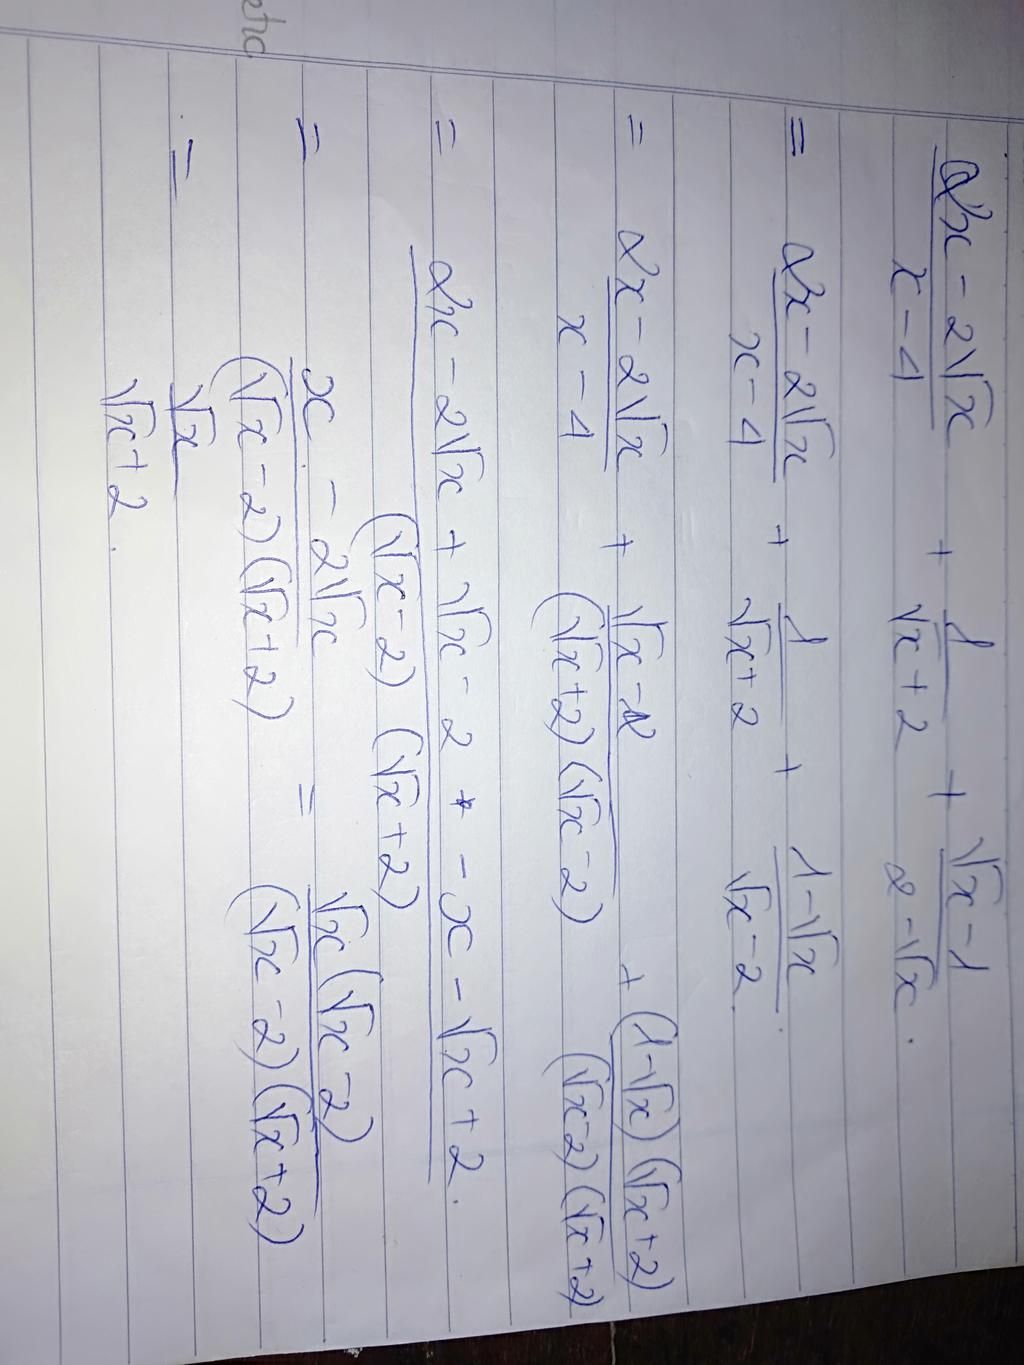 (2x - 2√x)/(x - 4) + 1/(√x + 2) + (√x - 1)/(2 - √x).
= (2x - 2√x)/(x - 4) + 1/(√x + 2) + (1 - √x)/(√x - 2).
= (2x - 2√x)/(x - 4) + (√x - 2)/((√x + 2)(√x - 2)) + ((1 - √x)(√x + 2))/((√x - 2)(√x + 2))
= (2x - 2√x + √x - 2 + - x - √x + 2.)/((√x - 2)(√x + 2))
= (x - 2√x)/((√x - 2)(√x + 2)) = (√x(√x - 2))/((√x - 2)(√x + 2))
= √x/(√x + 2).